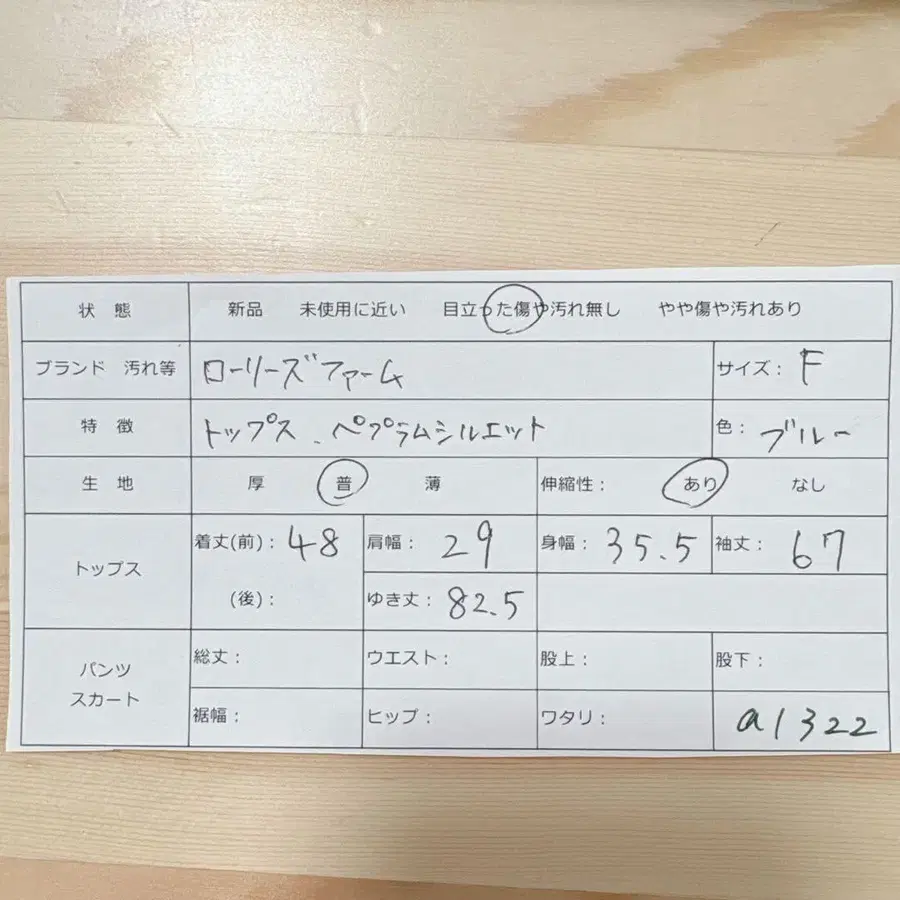 状 態 新品 未使用に近い 目立った傷や汚れ無し やや傷や汚れあり
ブランド 汚れ等 ローリーズファーム サイズ： F
特 徴 トップス、ペプラムシルエット 色： ブルー
生 地 厚 普 薄 伸縮性： あり なし
トップス 着丈(前)： 48 肩幅： 29 身幅： 35.5 袖丈： 67
(後)： ゆき丈： 82.5
パンツ スカート 総丈： ウエスト： 股上： 股下：
裾幅： ヒップ： ワタリ： a1322